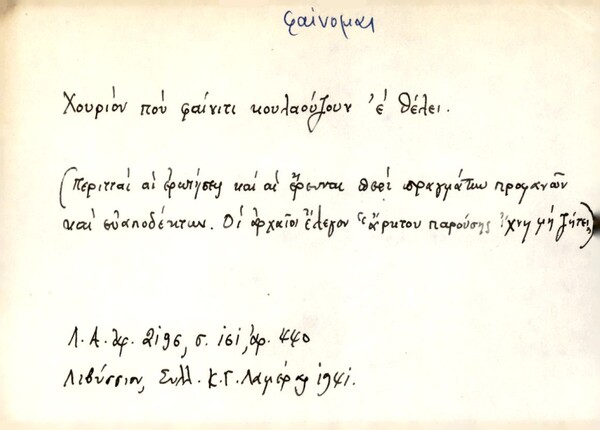 φαίνομαι
Χουριόν πού φαίνιτι κουλαούζουν 'έ θέλει.
(Περιτταί αἱ ἐρωτήσεις καί αἱ ἔρευναι περί πραγμάτων προφανῶν
καί εὐαποδέκτων. Οἱ ἀρχαῖοι ἔλεγον "ἄρκτου παρούσης ἴχνη μή ζήτει)
Λ.Α. ἀρ. 2195, σ. 151, ἀρ. 440
Λιβύσσιον, Συλλ. Κ.Γ. 1941.